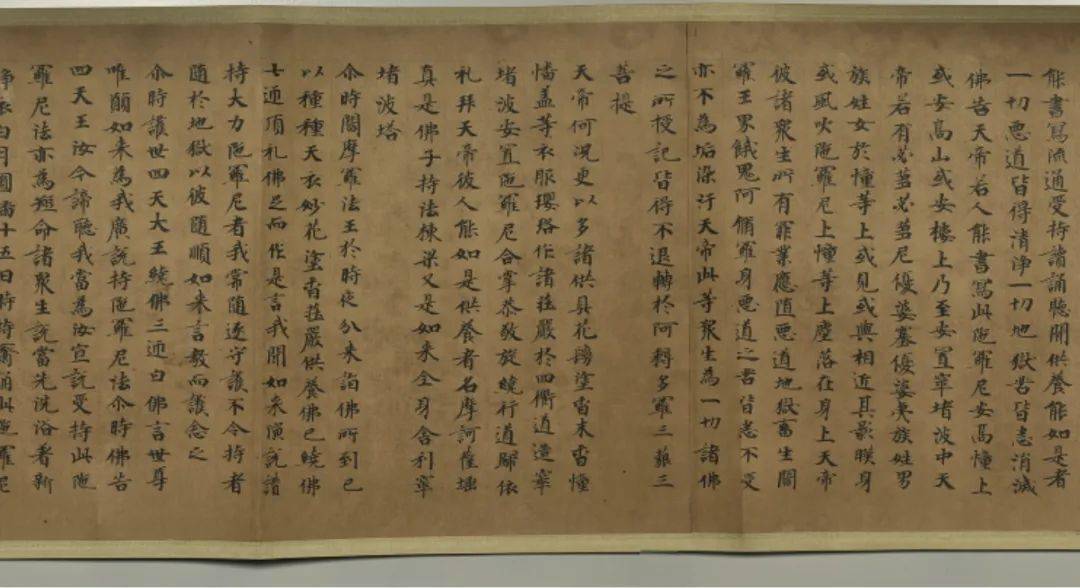 能書寫流通受持讀誦聽聞供養能如是者
一切惡道皆得清淨一切地獄苦皆悉消滅
佛告天帝若人能書寫此陁羅尼安高幢上
或安高山或安樓上乃至安置窣堵波中天
帝若有苾蒭苾蒭尼優婆塞優婆夷族姓男
族姓女於幢等上或見或與相近其影暎身
或風吹陁羅尼上幢等上塵落在身上天帝
彼諸衆生所有罪業應墮惡道地獄畜生閻
羅王界餓鬼阿脩羅身惡道之苦皆悉不受
亦不為垢染汙天帝此等衆生為一切諸佛
之所授記皆得不退轉於阿耨多羅三藐三
菩提
天帝何況更以多諸供具花鬘塗香末香幢
幡盖等衣服瓔珞作諸莊嚴於四衢道造窣
堵波安置陁羅尼合掌恭敬旋繞行道歸依
礼拜天帝彼人能如是供養者名摩訶薩埵
真是佛子持法棟梁又是如來全身舍利窣
堵波塔
尒時閻摩羅法王於時夜分來詣佛所到已
以種種天衣妙花塗香莊嚴供養佛已繞佛
七迊頂礼佛足而作是言我聞如來演說讚
持大力陁羅尼者我常隨逐守護不令持者
墮於地獄以彼隨順如來言教而護念之
尒時護世四天大王繞佛三迊白佛言世尊
唯願如來為我廣說持陁羅尼法尒時佛告
四天王汝今諦聽我當為汝宣說受持此陁
羅尼法亦為短命諸衆生說當先洗浴著新
淨衣白月圓滿十五日時持齋誦此陁羅尼